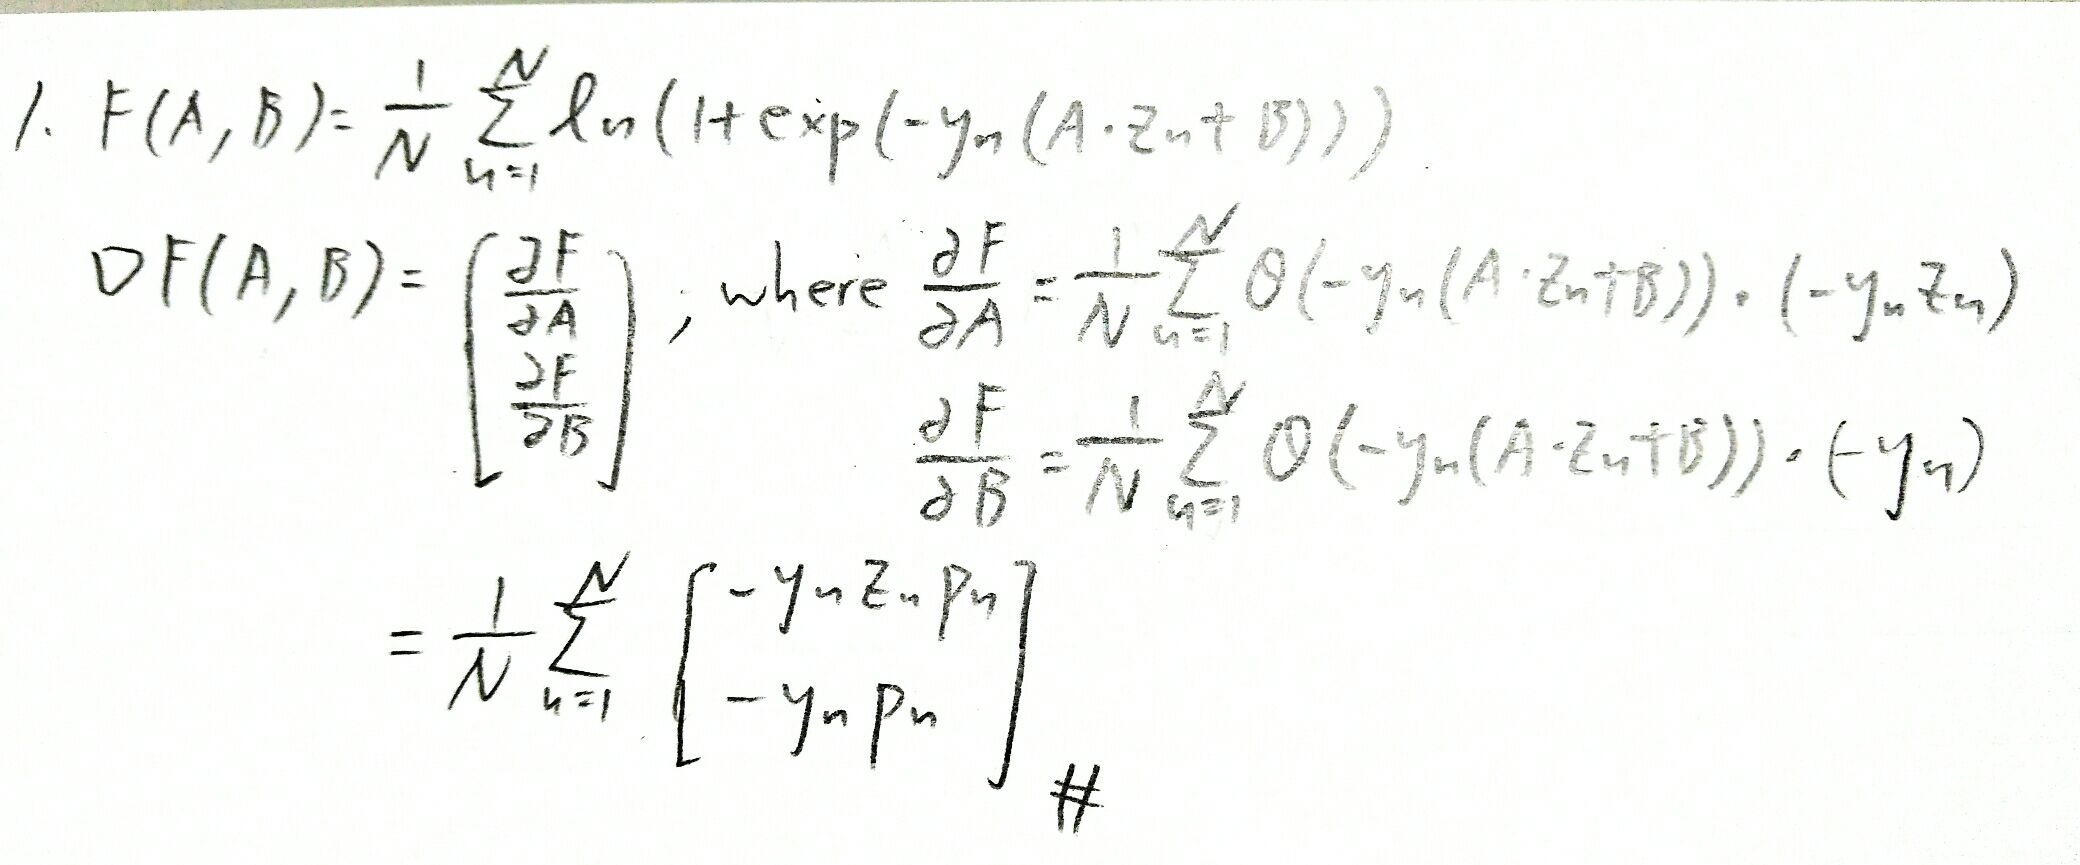 1. F(A, B) = 1/N Σ_{n=1}^{N} ln(1+exp(-y_n(A·z_n+B)))
∇F(A, B) = [∂F/∂A ∂F/∂B], where ∂F/∂A = 1/N Σ_{n=1}^{N} θ(-y_n(A·z_n+B))·(-y_n z_n)
∂F/∂B = 1/N Σ_{n=1}^{N} θ(-y_n(A·z_n+B))·(-y_n)
= 1/N Σ_{n=1}^{N} [-y_n z_n p_n -y_n p_n] #